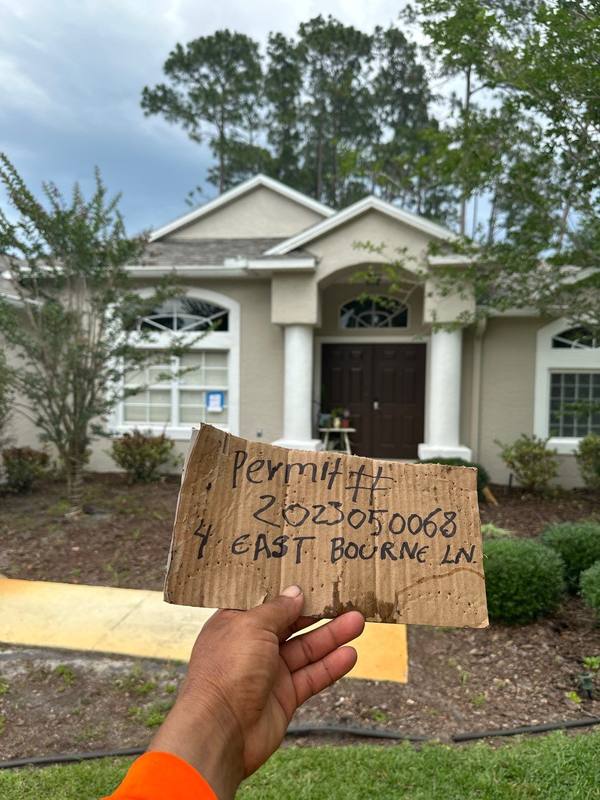 Permit#
2023050068
4 EAST BOURNE LN.